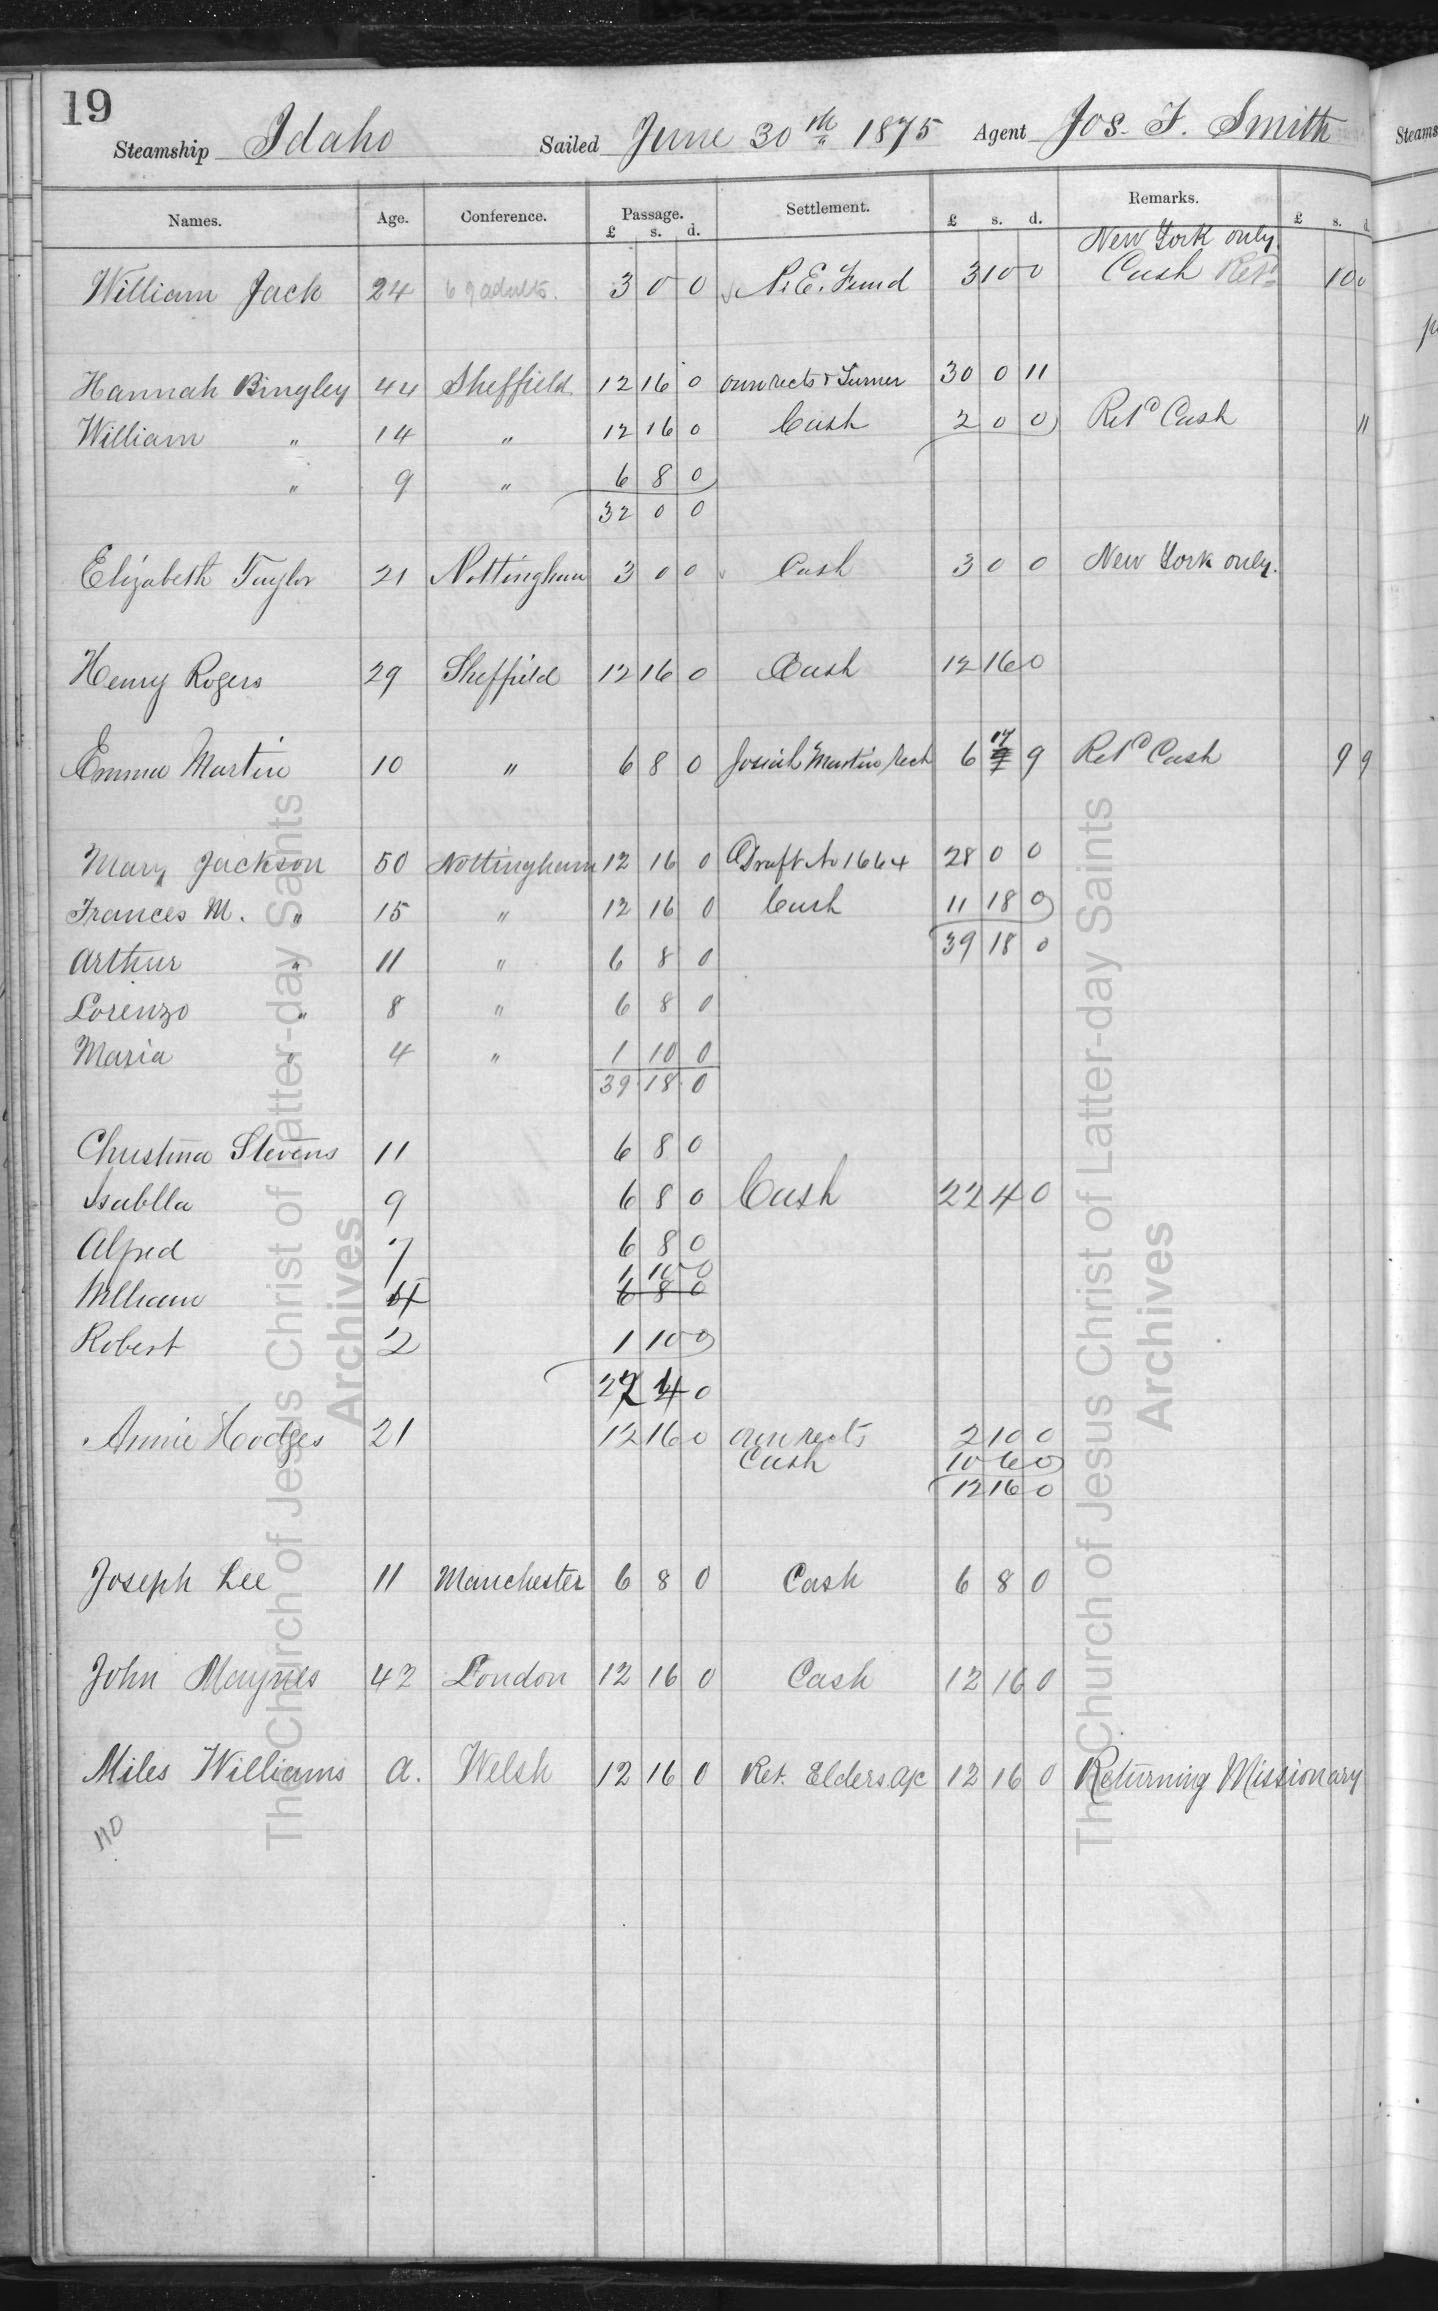 19
Steamship Idaho Sailed June 30th 1875 Agent Jos. F. Smith
Steams
Names. Age. Conference. Passage. Settlement. £ s. d. Remarks. £ s. d.
£ s. d.
New York only.
William Jack 24 69 adults. 3 0 0 P. E. Fund 3 10 0 Cash Retd 10 0
Hannah Bingley 44 Sheffield 12 16 0 own rects & Turner 30 0 11
William " 14 " 12 16 0 Cash 2 0 0 Retd Cash 11
" 9 " 6 8 0
32 0 0
Elizabeth Taylor 21 Nottingham 3 0 0 Cash 3 0 0 New York only.
Henry Rogers 29 Sheffield 12 16 0 Cash 12 16 0
Emma Martin 10 " 6 8 0 Josiah Martin rect 6 17 9 Retd Cash 9 9
Mary Jackson 50 Nottingham 12 16 0 Draft No 1664 28 0 0
Frances M. " 15 " 12 16 0 Cash 11 18 0
39 18 0
Arthur " 11 " 6 8 0
Lorenzo " 8 " 6 8 0
Maria " 4 " 1 10 0
39 18 0
Christina Stevens 11 6 8 0
Isablla 9 6 8 0 Cash 22 4 0
Alfred 7 6 8 0
1 10 0
William 4 6 8 0
Robert 2 1 10 0
22 4 0
Annie Hodges 21 12 16 0 own rects 2 10 0
Cash 10 6 0
12 16 0
Joseph Lee 11 Manchester 6 8 0 Cash 6 8 0
John Maynes 42 London 12 16 0 Cash 12 16 0
Miles Williams a. Welsh 12 16 0 Ret. Elders a/c 12 16 0 Returning Missionary
The Church of Jesus Christ of Latter-day Saints
Archives
The Church of Jesus Christ of Latter-day Saints
Archives